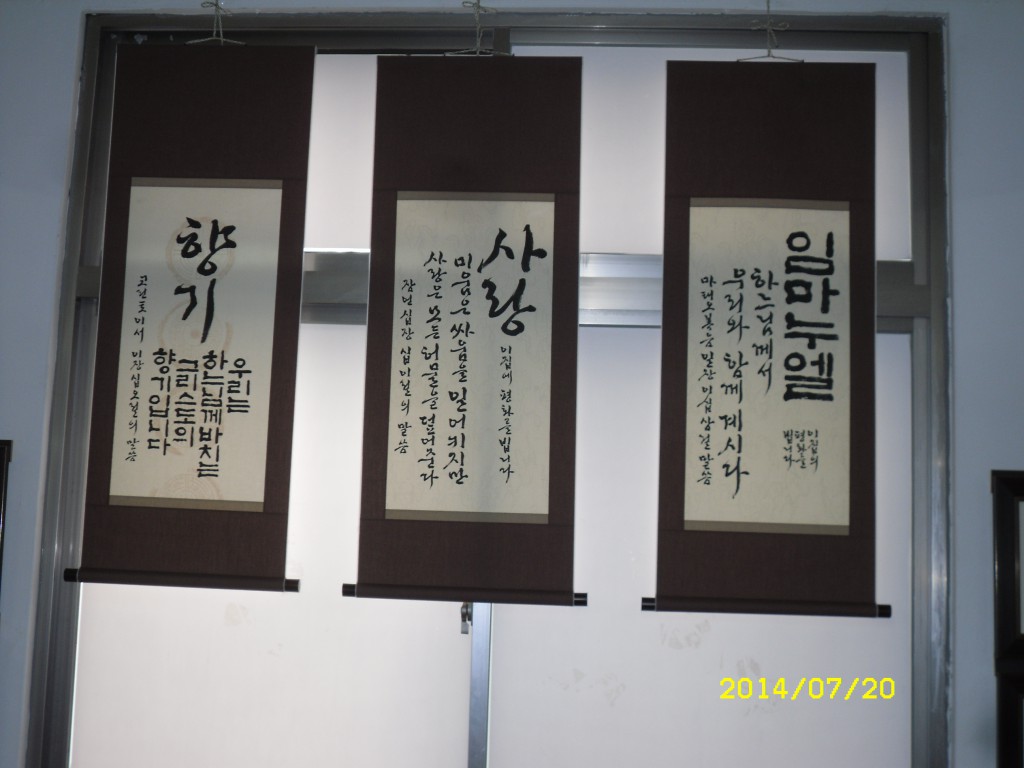 향기
우리는
하느님께 바치는
그리스도의
향기입니다
고린토이서 이장 십오절의 말씀
사랑
이 집에 평화를 빕니다
미움은 싸움을 일어키지만
사랑은 모든 허물을 덮어준다
잠언 십장 십이절의 말씀
임마누엘
이 집의
평화를
빕니다
하느님께서
우리와 함께 계시다
마태오복음 일장 이십삼절 말씀
2014/07/20